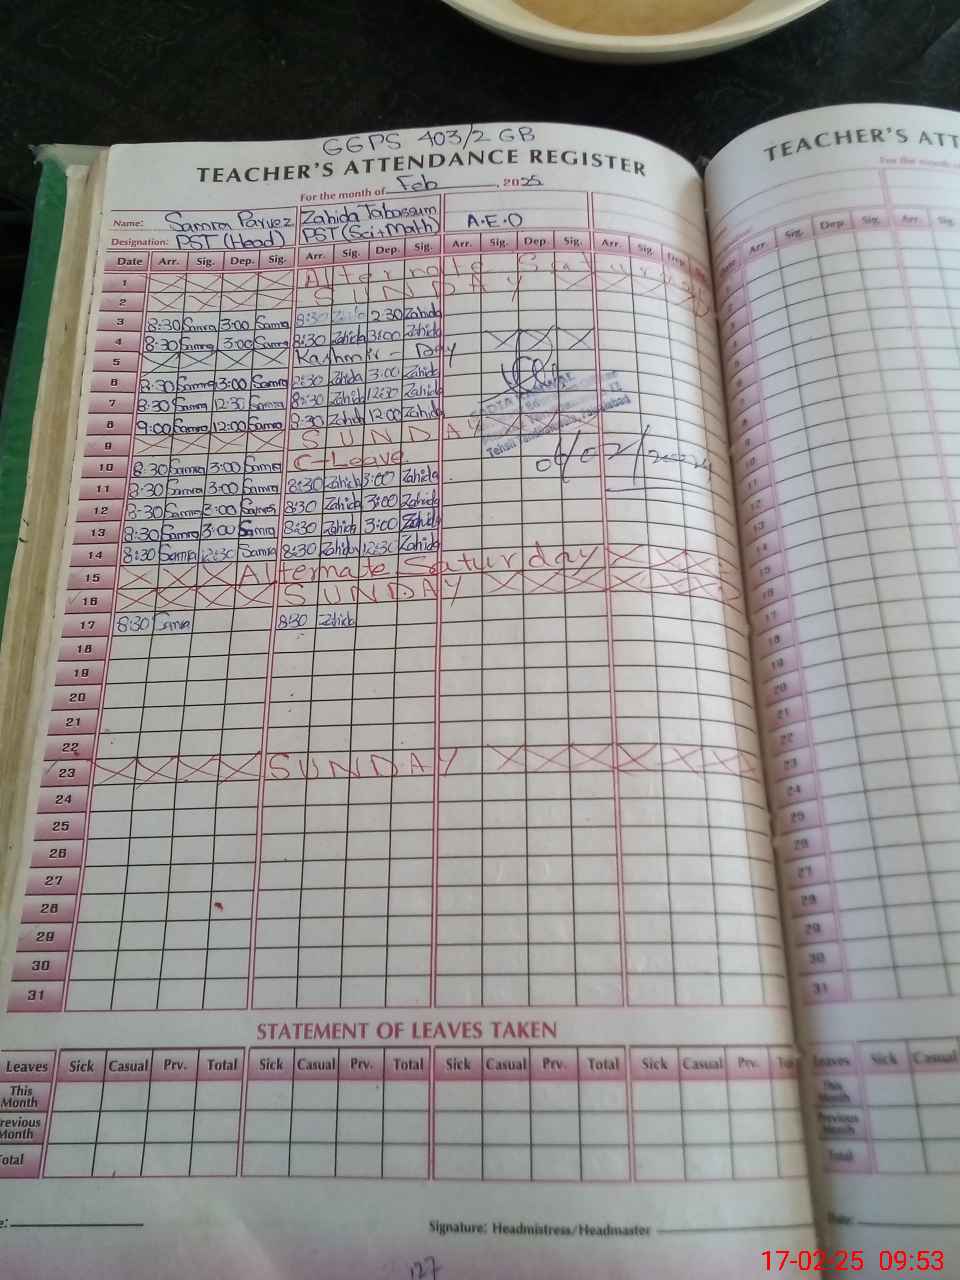 GGPS 403/2 GB
TEACHER'S ATTENDANCE REGISTER
For the month of Feb, 2025
Name: Samra Parvez Zahida Tabassum
Designation: PST (Head) PST (Sci+Math) A.E.O
Date Arr. Sig. Dep. Sig. Arr. Sig. Dep. Sig. Arr. Sig. Dep Sig. Arr. Sig. Dep
1 Alternate Saturday
2 SUNDAY
3 8:30 Samra 3:00 Samra 8:30 2:30 Zahida
4 8:30 Samra 3:00 Samra 8:30 Zahida 3:00 Zahida
5 Kashmir - Day
6 8:30 Samra 3:00 Samra 8:30 Zahida 3:00 Zahida
7 8:30 Samra 12:30 Samra 8:30 Zahida 12:30 Zahida
8 9:00 Samra 12:00 Samra 8:30 Zahida 12:00 Zahida
9 SUNDAY
10 8:30 Samra 3:00 Samra C-Leave
11 8:30 Samra 3:00 Samra 8:30 Zahida 3:00 Zahida
12 8:30 Samra 3:00 Samra 8:30 Zahida 3:00 Zahida
13 8:30 Samra 3:00 Samra 8:30 Zahida 3:00 Zahida
14 8:30 Samra 12:30 Samra 8:30 Zahida 12:30 Zahida
15 Alternate Saturday
16 SUNDAY
17 8:30 Samra 8:30 Zahida
18
19
20
21
22
23 SUNDAY
24
25
26
27
28
29
30
31
STATEMENT OF LEAVES TAKEN
Leaves Sick Casual Prv. Total Sick Casual Prv. Total Sick Casual Prv. Total Sick Casual Prv.
This Month
Previous Month
Total
Signature: Headmistress/Headmaster
127
TEACHER'S ATT
For the month
Arr. Sig. Dep Sig. Arr. Sig.
Leaves Sick Casual
This Month
Previous Month
Total
Date:
17-02-25 09:53